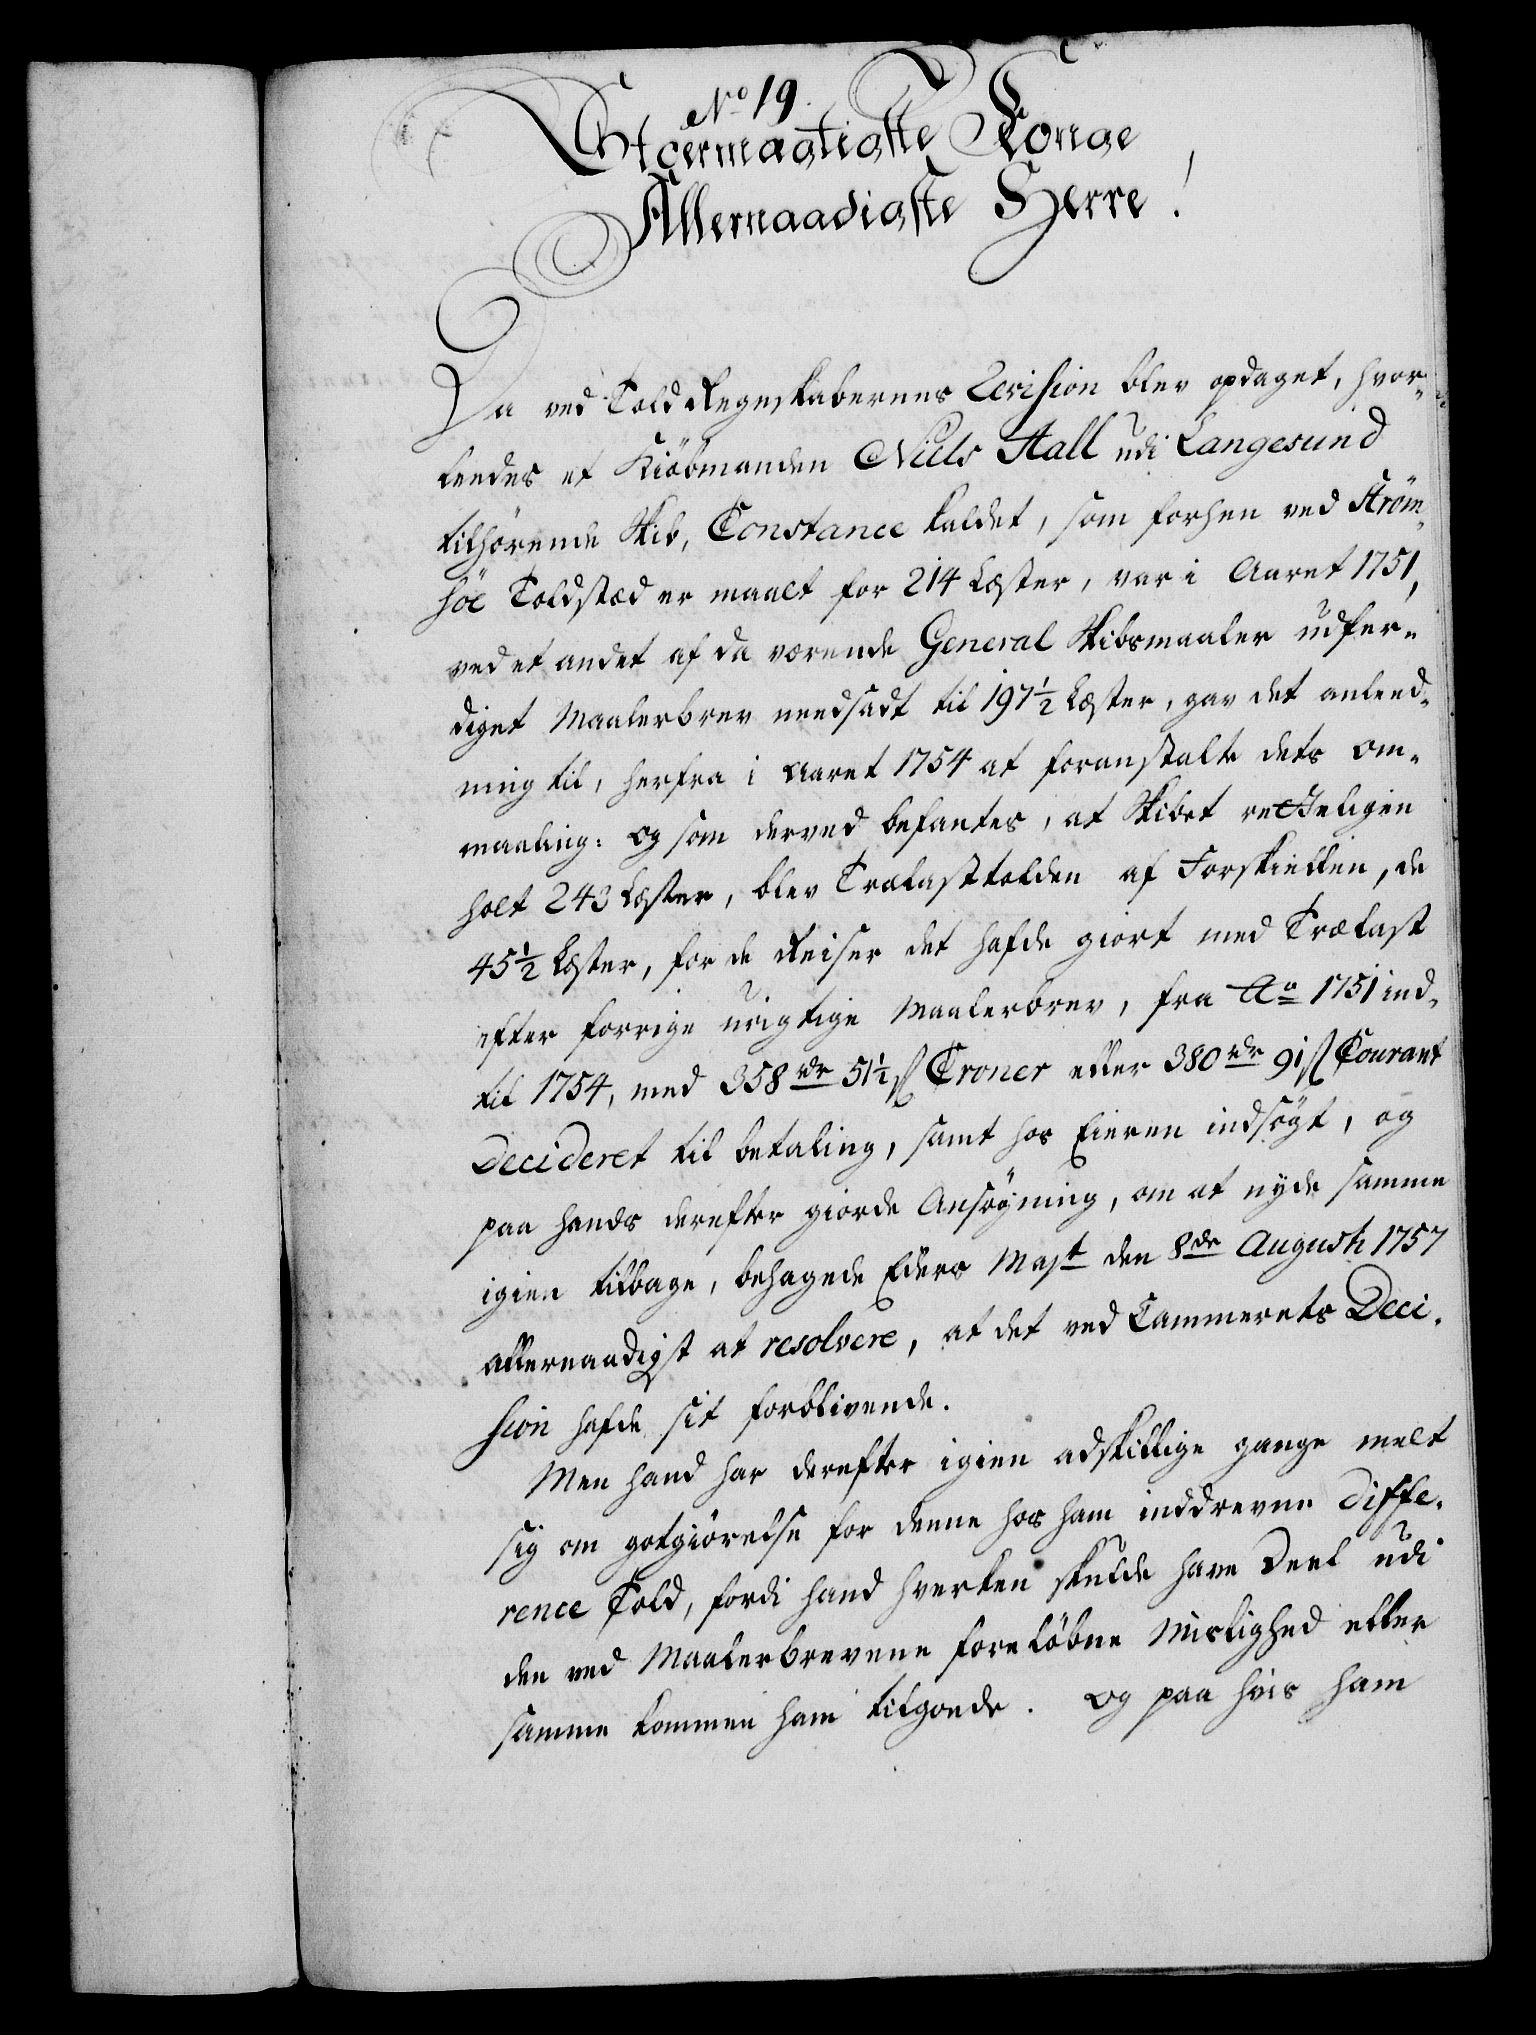 No 19.
Stoermægtigste Konge
Allernaadigste Herre!
Da ved Told Regnskabernes Revision blev opdaget, hvor-
ledes et Kiöbmanden Niels Aall udi Langesund
tilhörende Skib, Constance kaldet, som forhen ved Ström-
söe Toldstæd er maalt for 214 Læster, var i Aaret 1751,
ved et andet af da værende General Skibsmaaler udfer-
diget Maalerbrev needsadt til 197½ Læster, gav det anleed-
ning til, herfra i Aaret 1754 at foranstalte dets om-
maaling: og som derved befantes, at Skibet retteligen
holt 243 Læster, blev Trælasttolden af Forskiellen, de
45½ Læster, for de Reiser det hafde giort med Trælast
efter forrige urigtige Maalerbrev, fra Ao 1751 ind-
til 1754, med 358 rdr 51½ ß Croner eller 380 rdr 91 ß Courant
Decideret til betaling, samt hos Eieren indsögt, og
paa hands derefter giorde Ansögning, om at nyde samme
igien tilbage, behagede Eders Mayt den 8de Augusti 1757
allernaadigst at resolvere, at det ved Cammerets Deci-
sion hafde sit forblivende.
Men hand har derefter igien adskillige gange melt
sig om gotgiörelse for denne hos ham inddrevne Diffe-
rence Told, fordi hand hverken skulde have Deel udi
den ved Maalerbrevene foreløbne Mislighed eller
samme kommen ham tilgode. Og paa hvis ham